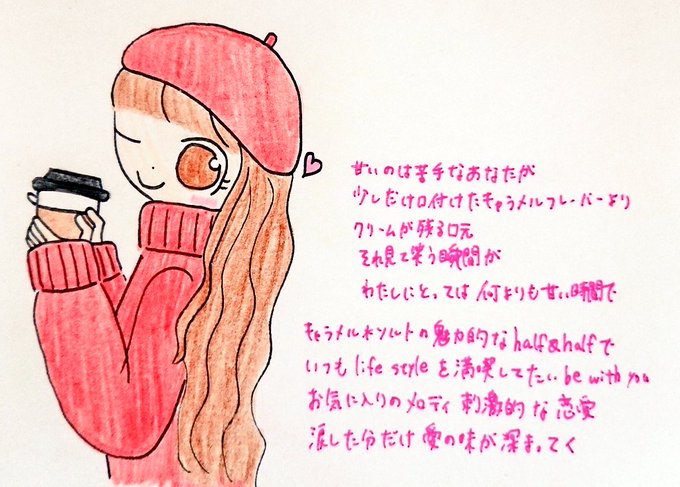 甘いのは苦手なあなたが
少しだけ口付けたキャラメルフレーバーより
クリームが残る口元
それ見て笑う瞬間が
わたしにとっては何よりも甘い時間で
キャラメルホンソルトの魅力的なhalf&halfで
いつもlife styleを満喫してたい be with you
お気に入りのメロディ 刺激的な恋愛
涙した分だけ 愛の味が深まってく